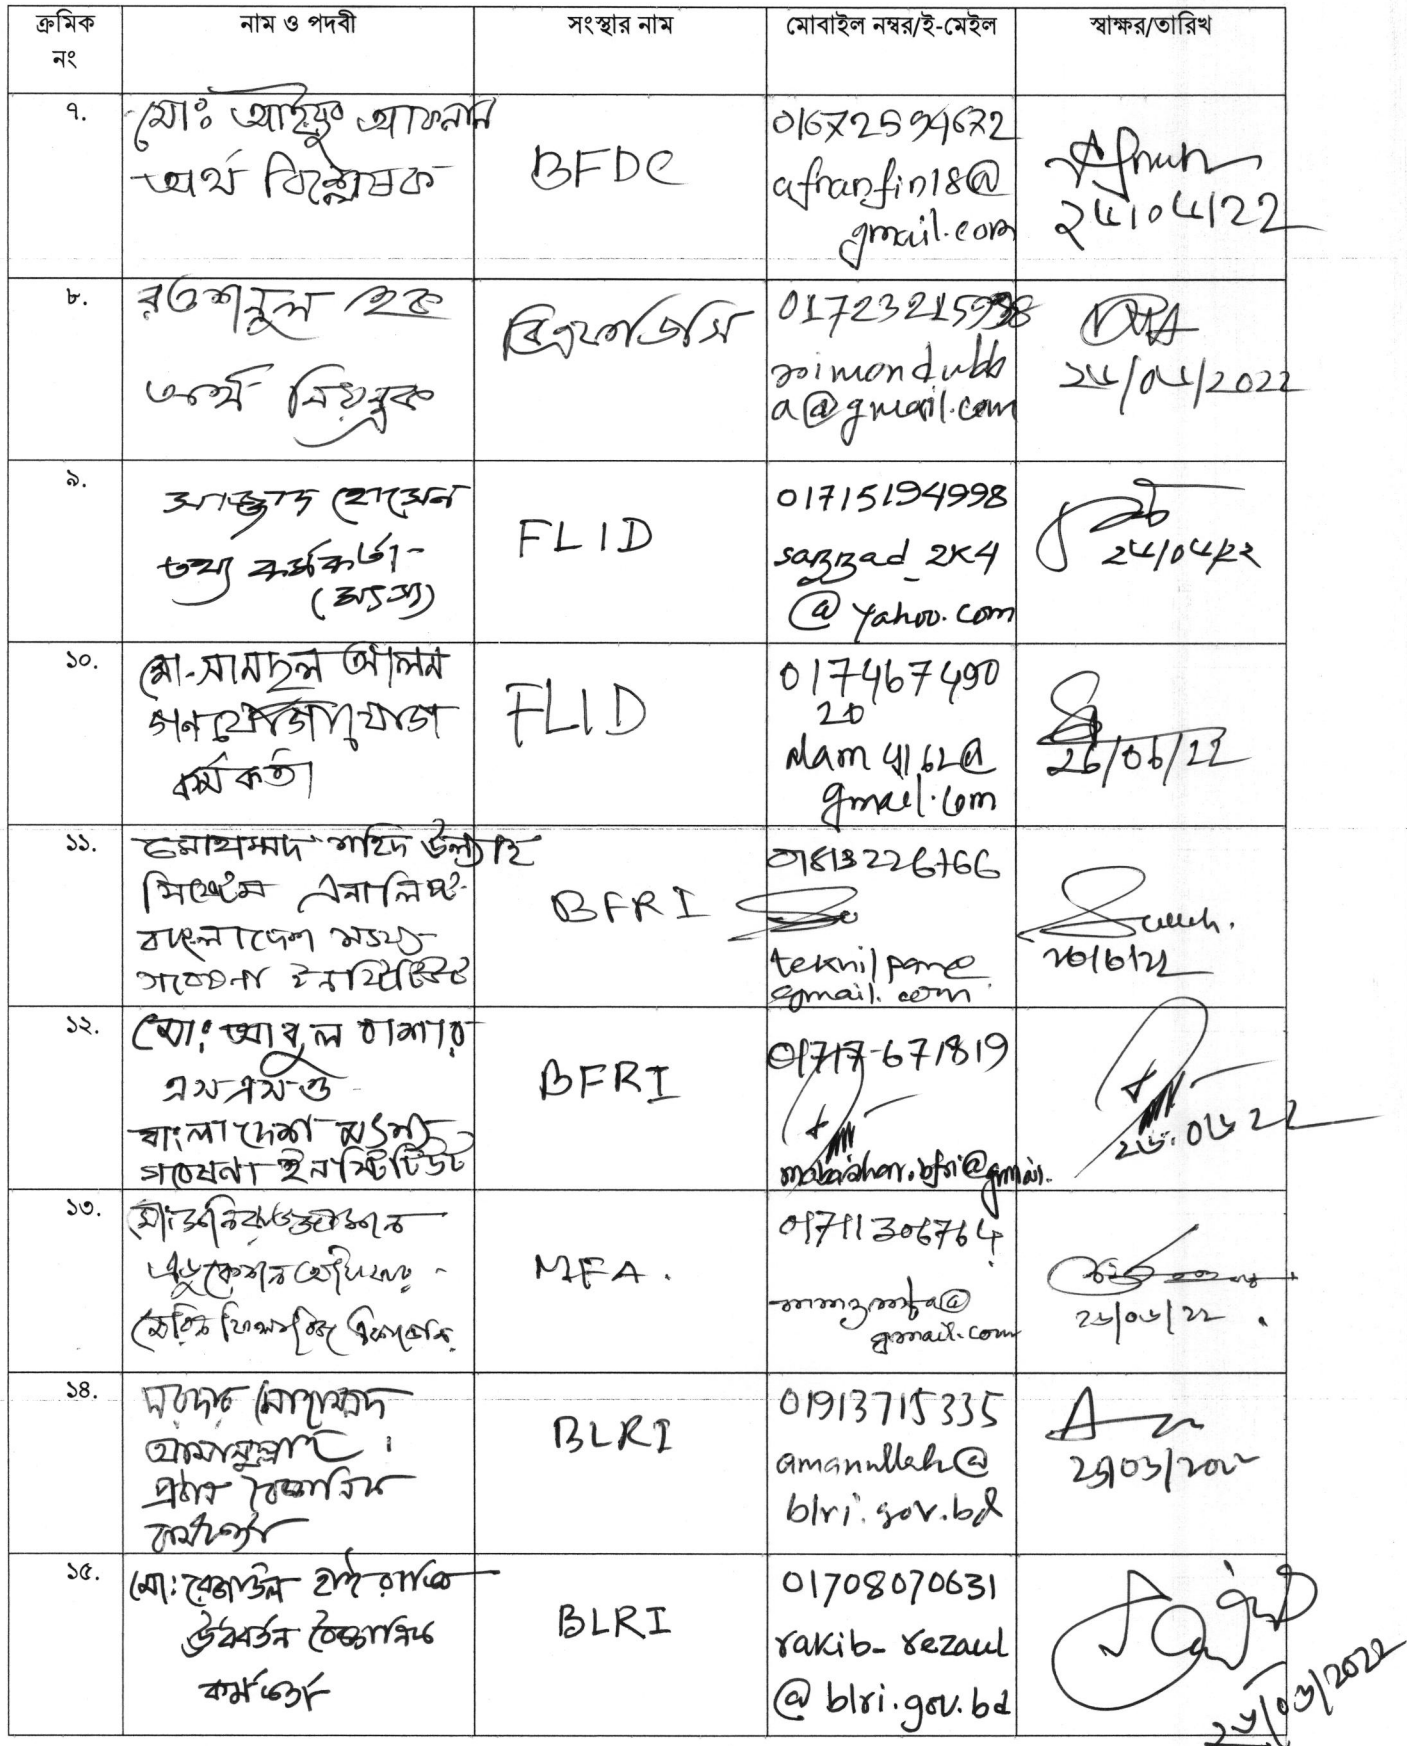 ক্রমিক নং
নাম ও পদবী
সংস্থার নাম
মোবাইল নম্বর/ই-মেইল
স্বাক্ষর/তারিখ
৭.
মোঃ আইয়ুব আফনান
অর্থ বিশ্লেষক
BFDC
01672594672
afnanfin18@
gmail.com
২৪/০৪/22
৮.
হক
অর্থ নিয়ন্ত্রক
বিএফডিসি
raimondubb
a@gmail.com
২৪/০৪/2022
৯.
সাজ্জাদ হোসেন
তথ্য কর্মকর্তা
(মৎস্য)
FLID
01715194998
sazzad_2k4
@yahoo.com
২৪/০৪/২২
১০.
মো. সামছুল আলম
গণযোগাযোগ
কর্মকর্তা
FLID
017467490
20
gmail.com
26/06/22
১১.
মোহাম্মদ শহিদ উল্যাহ
সিস্টেম এনালিষ্ট
বাংলাদেশ মৎস্য
গবেষণা ইনস্টিটিউট
BFRI
gmail.com
১২.
মোঃ আবুল বাশার
এসএসও
বাংলাদেশ মৎস্য
গবেষণা ইনস্টিটিউট
BFRI
01717-671819
.bfri@gmail.
১৩.
MFA.
01711306764
gmail.com
২৬/০৬/২২
১৪.
সরদার মোহাম্মদ
আমানুল্লাহ
প্রধান বৈজ্ঞানিক
কর্মকর্তা
BLRI
01913715335
amanullah@
blri.gov.bd
১৫.
মো: রেজাউল হাই রাকিব
ঊর্ধ্বতন বৈজ্ঞানিক
কর্মকর্তা
BLRI
01708070631
rakib_rezaul
@blri.gov.bd
২৬/০৬/2022